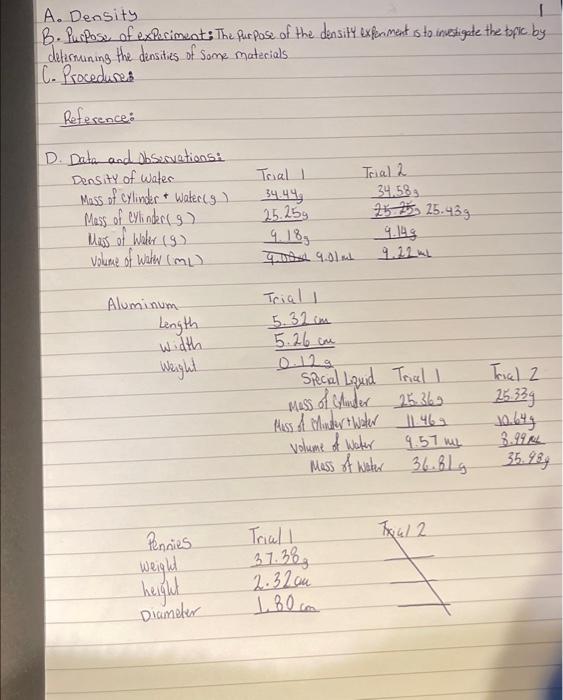 1
A. Density
B. Purpose of experiment: The purpose of the density experiment is to investigate the topic by
determining the densities of some materials
C. Procedures
Reference:
D. Data and Observations:
Density of water Trial 1 Trial 2
Mass of cylinder + water(g) 34.44g 34.58g
Mass of cylinder(g) 25.25g 25.25g 25.43g
Mass of water (g) 9.18g 9.14g
Volume of water (mL) 9.01 mL 9.22 mL
Aluminum Trial 1
Length 5.32 cm
Width 5.26 cm
Weight 0.12g
Special Liquid Trial 1 Trial 2
Mass of Cylinder 25.36g 25.33g
Mass of Cylinder + Water 11.46g 10.64g
Volume of Water 9.57 mL 8.99 mL
Mass of Water 36.81g 35.98g
Pennies Trial 1 Trial 2
weight 37.38g
height 2.32 cm
Diameter 1.80 cm